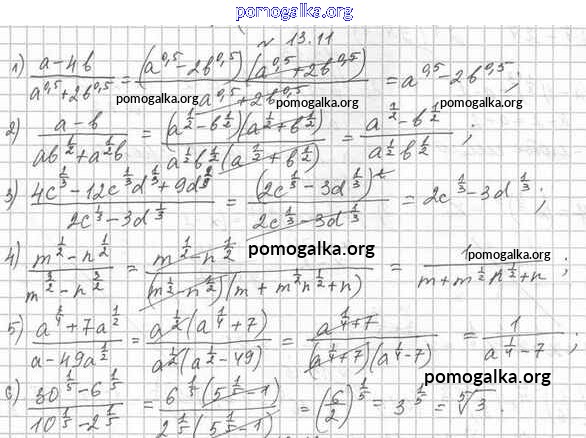 pomogalka.org
№ 13.11
1) (a-4b)/(a^0,5+2b^0,5) = (a^0,5-2b^0,5)(a^0,5+2b^0,5)/(a^0,5+2b^0,5) = a^0,5-2b^0,5;
pomogalka.org pomogalka.org pomogalka.org
2) (a-b)/(ab^(1/2)+a^(1/2)b) = (a^(1/2)-b^(1/2))(a^(1/2)+b^(1/2))/(a^(1/2)b^(1/2)(a^(1/2)+b^(1/2))) = (a^(1/2)-b^(1/2))/(a^(1/2)b^(1/2));
3) (4c^(2/3)-12c^(1/3)d^(1/3)+9d^(2/3))/(2c^(1/3)-3d^(1/3)) = (2c^(1/3)-3d^(1/3))^2/(2c^(1/3)-3d^(1/3)) = 2c^(1/3)-3d^(1/3);
4) (m^(1/2)-n^(1/2))/(m^(3/2)-n^(3/2)) = (m^(1/2)-n^(1/2))/((m^(1/2)-n^(1/2))(m+m^(1/2)n^(1/2)+n)) = 1/(m+m^(1/2)n^(1/2)+n);
pomogalka.org pomogalka.org
5) (a^(3/4)+7a^(1/2))/(a-49a^(1/2)) = a^(1/2)(a^(1/4)+7)/(a^(1/2)(a^(1/2)-49)) = (a^(1/4)+7)/((a^(1/4)+7)(a^(1/4)-7)) = 1/(a^(1/4)-7);
pomogalka.org
6) (30^(1/5)-6^(1/5))/(10^(1/5)-2^(1/5)) = 6^(1/5)(5^(1/5)-1)/(2^(1/5)(5^(1/5)-1)) = (6/2)^(1/5) = 3^(1/5) = ⁵√3.